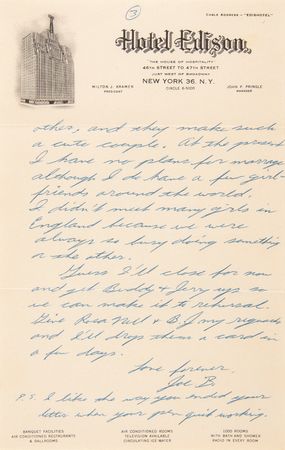 3
CABLE ADDRESS - "EDISHOTEL"
Hotel Edison.
"THE HOUSE OF HOSPITALITY
46TH STREET TO 47TH STREET
JUST WEST OF BROADWAY
NEW YORK 36, N.Y.
MILTON J. KRAMER
PRESIDENT
CIRCLE 6-5000
JOHN F. PRINGLE
MANAGER
other, and they make such
a cute couple. At the present
I have no plans for marriage
although I do have a few girl-
friends around the world.
I didn't meet many girls in
England because we were
always so busy doing something
or the other.
Guess I'll close for now
and get Buddy & Jerry up so
we can make it to rehersal.
Give Rosa Nell & B.J. my regards
and I'll drop them a card in
a few days.
Love forever,
Joe B.
P.S. I like the way you ended your
letter when your pen quit working.
BANQUET FACILITIES
AIR CONDITIONED RESTAURANTS
& BALLROOMS
AIR CONDITIONED ROOMS
TELEVISION AVAILABLE
CIRCULATING ICE WATER
1000 ROOMS
WITH BATH AND SHOWER
RADIO IN EVERY ROOM